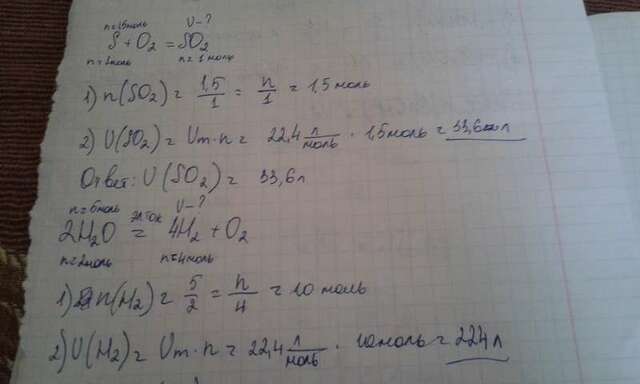 n=1,5моль V-?
S + O2 = SO2
n=1моль n=1моль
1) n(SO2) = 1,5/1 = n/1 = 1,5 моль
2) V(SO2) = Vm·n = 22,4 л/моль · 1,5моль = 33,6 л
Ответ: V(SO2) = 33,6 л
n=5моль эл.ток V-?
2H2O = 4H2 + O2
n=2моль n=4моль
1) n(H2) = 5/2 = n/4 = 10 моль
2) V(H2) = Vm·n = 22,4 л/моль · 10моль = 224 л